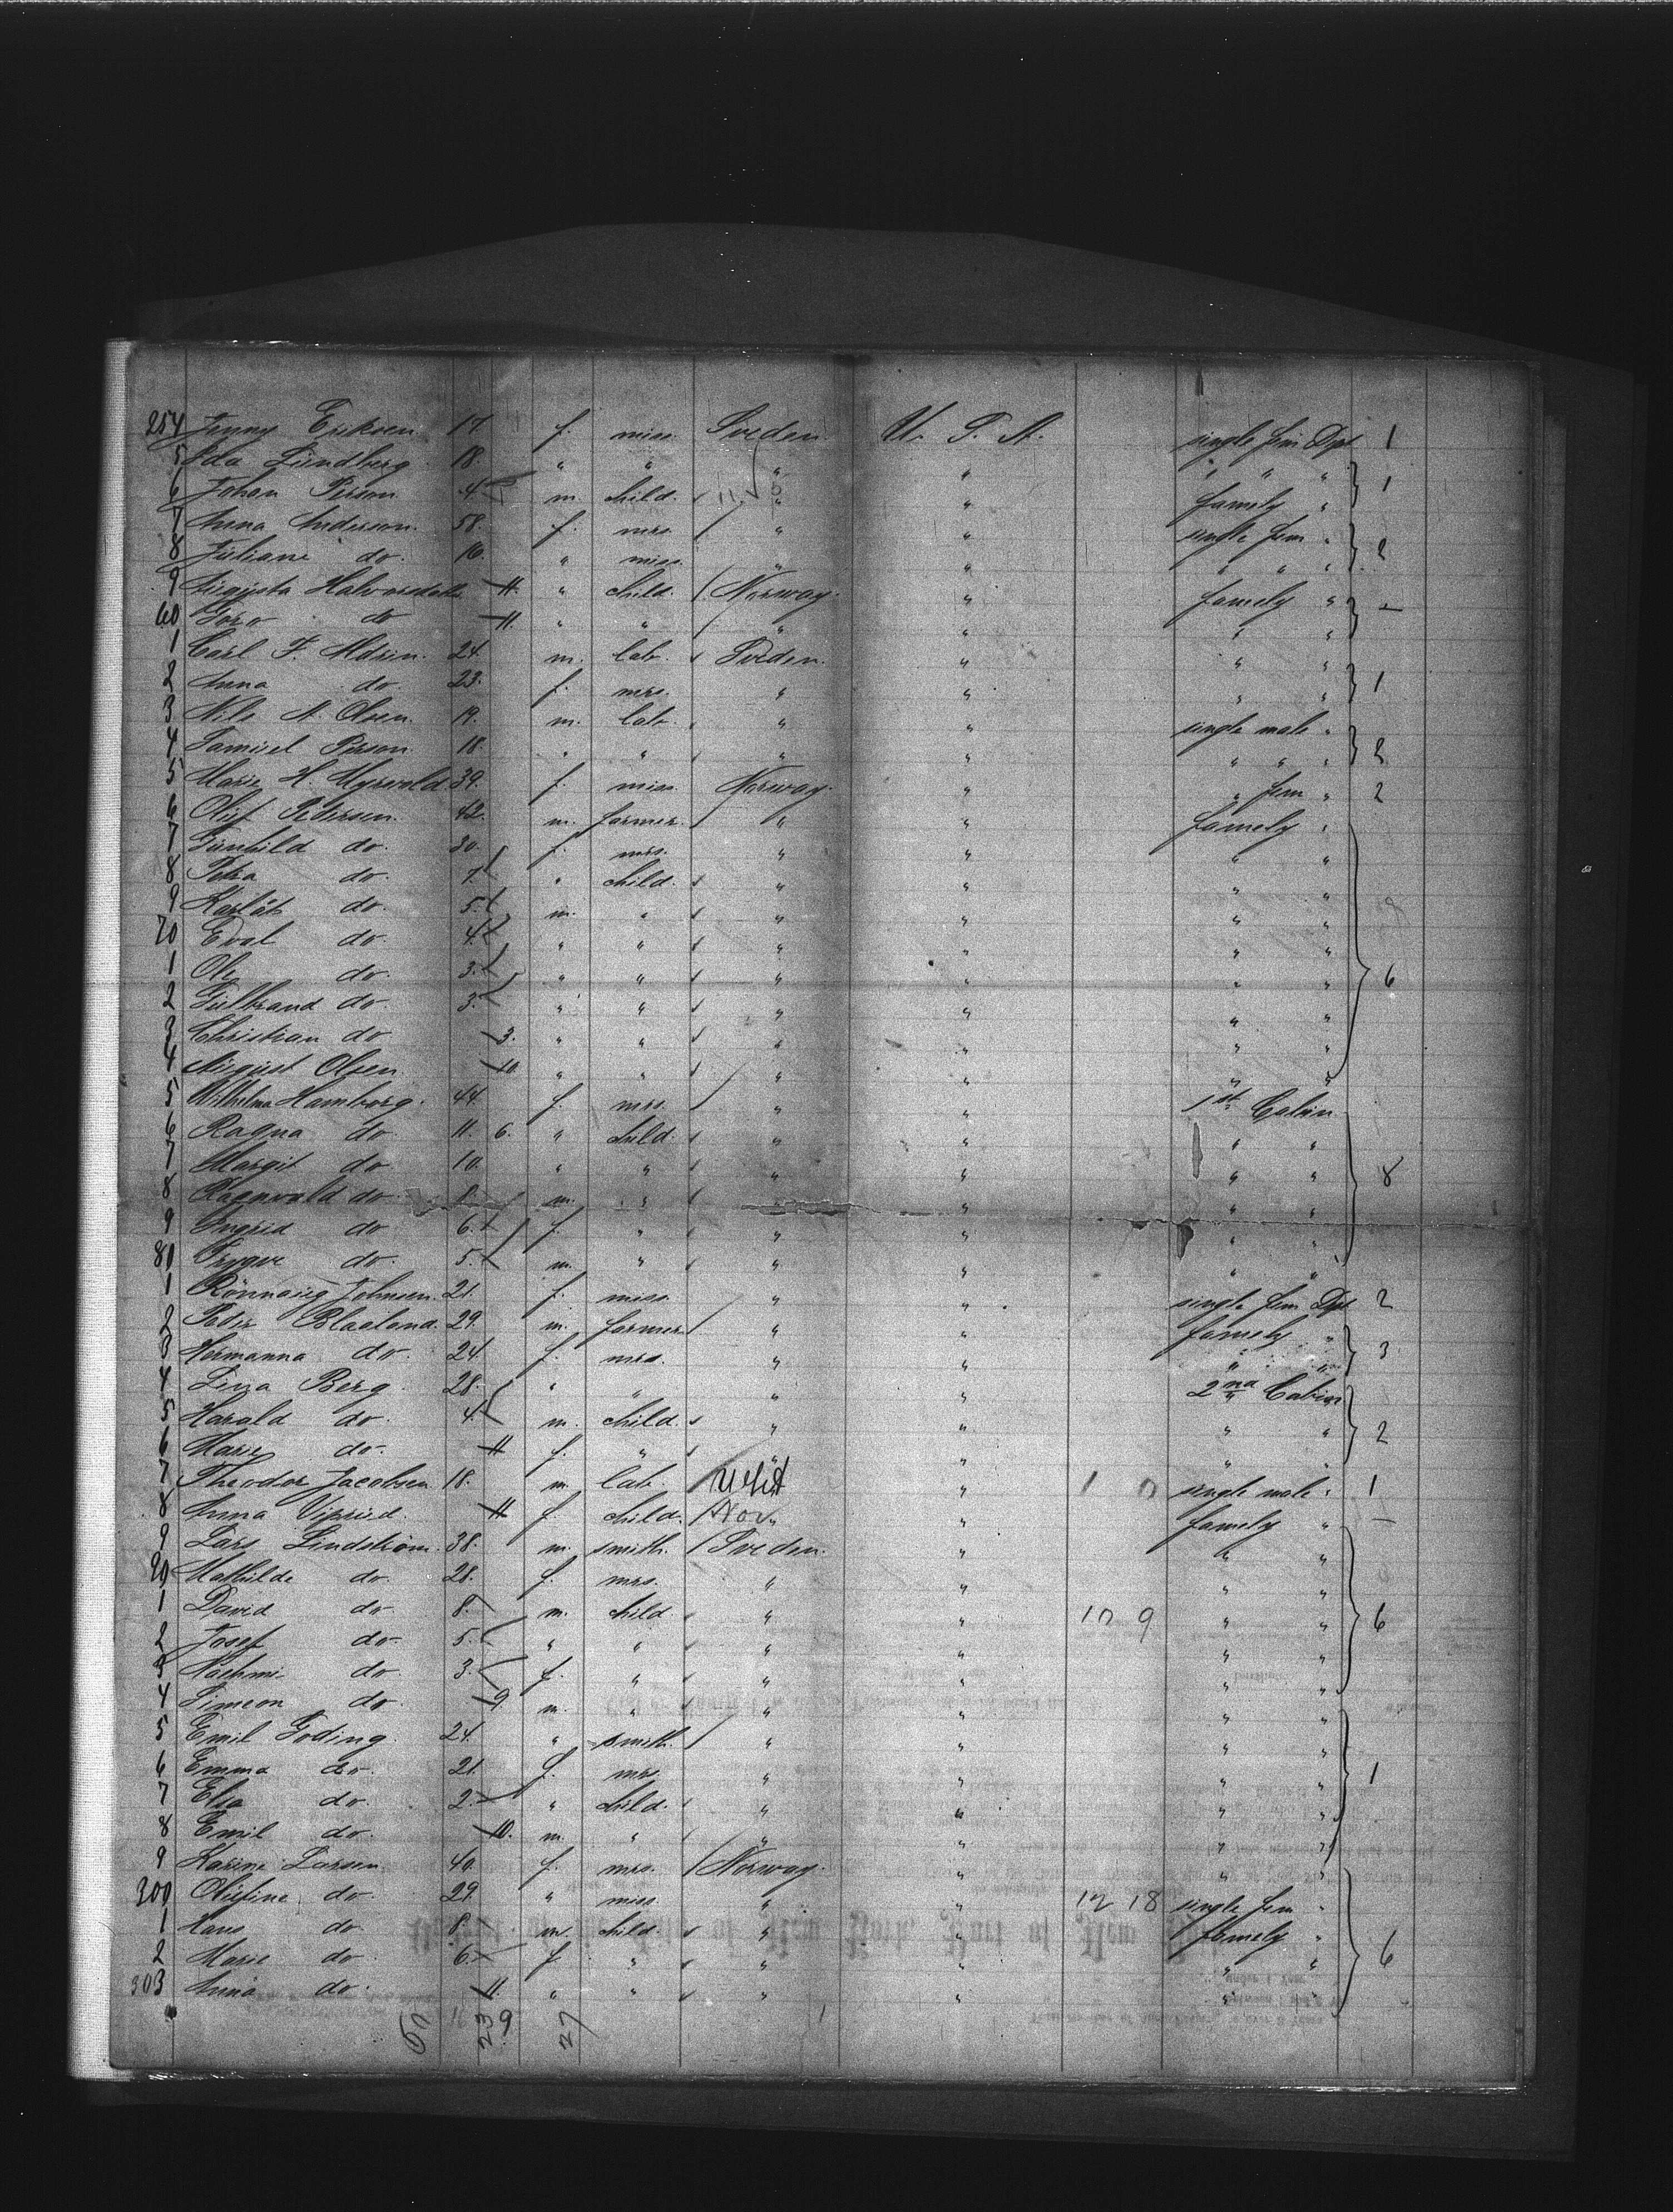 254 Jenny Eriksen. 17. f. miss. Sveden. U. S. A. single fem Dpt 1
5 Ida Lündberg. 18. " " " " " " "
6 Johan Person. 4. m. child. 11 " " famely " 1
7 Anna Anderson. 58. f. mrs. " " single fem "
8 Juliane do. 16. " miss. " " " " " 2
9 Augusta 11. " child. Norway. " famely "
60 Goro do 11. " " " " " " —
1 Carl F. 24. m. lab. Sveden. " " "
2 Anna do. 23. f. mrs. " " " " 1
3 Nils A. Olsen. 19. m. lab. " " single male "
4 Samuel Person. 18. " " " " " " " 2
5 Marie H. Myrvold 39. f. miss. Norway. " " fem " 2
6 Oluf Petersen. 42. m. farmer. " " famely "
7 Gunhild do. 30. f. mrs. " " " "
8 Petra do. 7. " child. " " " "
9 do. 5. m. " " " " "
70 Eval do. 4. " " " " " "
1 Ole do. 3. " " " " " " 6
2 Gulbrand do. 3. " " " " " "
3 Christian do 3. " " " " " "
4 August Olsen 10. " " " " " "
5 Wilhelma Hamborg. 44. f. mrs. " " 1st Cabin
6 Ragna do. 11. 6. " child. " " " "
7 Margit do. 10. " " " " " " 8
8 Ragnvald do. 8. m. " " " " "
9 Ingrid do 6. f. " " " " "
80 Trygve do. 5. m. " " " " "
1 Rönnaug Johnsen. 21. f. miss. " " single fem Dpt 2
2 Peder Blaaland. 29. m. farmer " " famely "
3 Hermanna do. 24. f. mrs. " " " " 3
4 Lina Berg. 28. " " " " 2nd Cabin
5 Harald do. 4. m. child. " " " " 2
6 Marie do. 11 f. " " " " "
7 Theodor Jacobsen 18. m. lab. " 1 0 single male " 1
8 Anna 11 f. child. Nor. " famely " —
9 Lars Lindström. 38. m. smith. Sveden. " " "
90 Mathilde do. 28. f. mrs. " " " "
1 David do 8. m. child " " 10 9 " " 6
2 Josef do. 5. " " " " " "
3 do 3. f. " " " " "
4 Simeon do. 9. m. " " " " "
5 Emil Goding. 24. " smith. " " " "
6 Emma do. 21. f. mrs. " " " " 1
7 Elsa do. 2. " child. " " " "
8 Emil do. 10. m. " " " " "
9 Karine Larsen. 40. f. mrs. Norway. " " "
300 Olufine do. 29. " miss. " " 12 18 single fem "
1 Hans do. 8. m. child. " " famely "
2 Marie do 6. f. " " " " " 6
303 Anna do. 11. " " " " " "
23 9 27